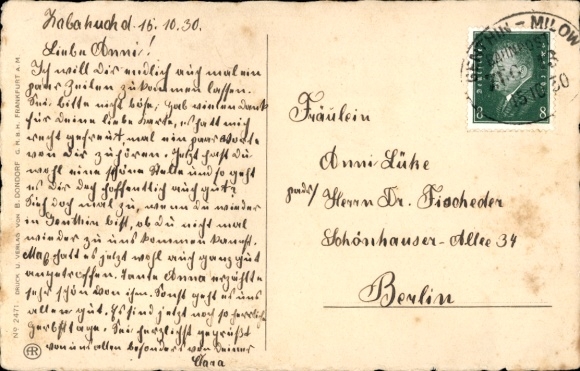 Zabakuck d. 15.10.30.
Liebe Anni!
Ich will Dir endlich auch mal ein
paar Zeilen zukommen lassen.
Sei bitte nicht böse, hab vielen Dank
für Deine liebe Karte, es hat mich
recht gefreut, mal ein paar Worte
von Dir zu hören. Jetzt hast Du
wohl eine schöne Stelle und so geht
es Dir doch hoffentlich auch gut?
Sieh doch mal zu, wenn Du wieder
in Genthin bist, ob Du nicht mal
wieder zu uns kommen kannst.
hat es jetzt wohl auch ganz gut
angetroffen. Tante Anna erzählte
sehr schön von ihm. Sonst geht es uns
allen gut. Es sind jetzt noch so herrliche
Herbsttage. Sei herzlichst gegrüßt
von uns allen besonders von Deiner
Clara
Fräulein
Anni Lüke
Herrn Dr. Fischeder
Schönhauser-Allee 34
Berlin
GENTHIN - MILOW
15.10.30
8 8
No 2471. DRUCK U. VERLAG VON B. DONDORF G.M.B.H. FRANKFURT A.M.